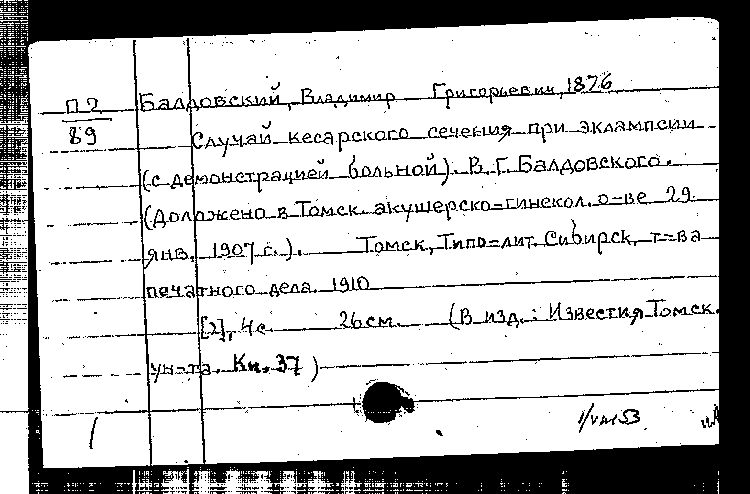 П2 Балдовский, Владимир Григорьевич, 1876
89 Случай кесарского сечения при эклампсии
(с демонстрацией больной). В. Г. Балдовского.
(Доложено в Томск. акушерско=гинекол. о-ве 29
янв. 1907 г.). Томск, Типо=лит. Сибирск. т=ва
печатного дела. 1910
[2], 4 с. 26 см. (В изд.: Известия Томск.
ун=та. Кн. 37)
1/VIII 53